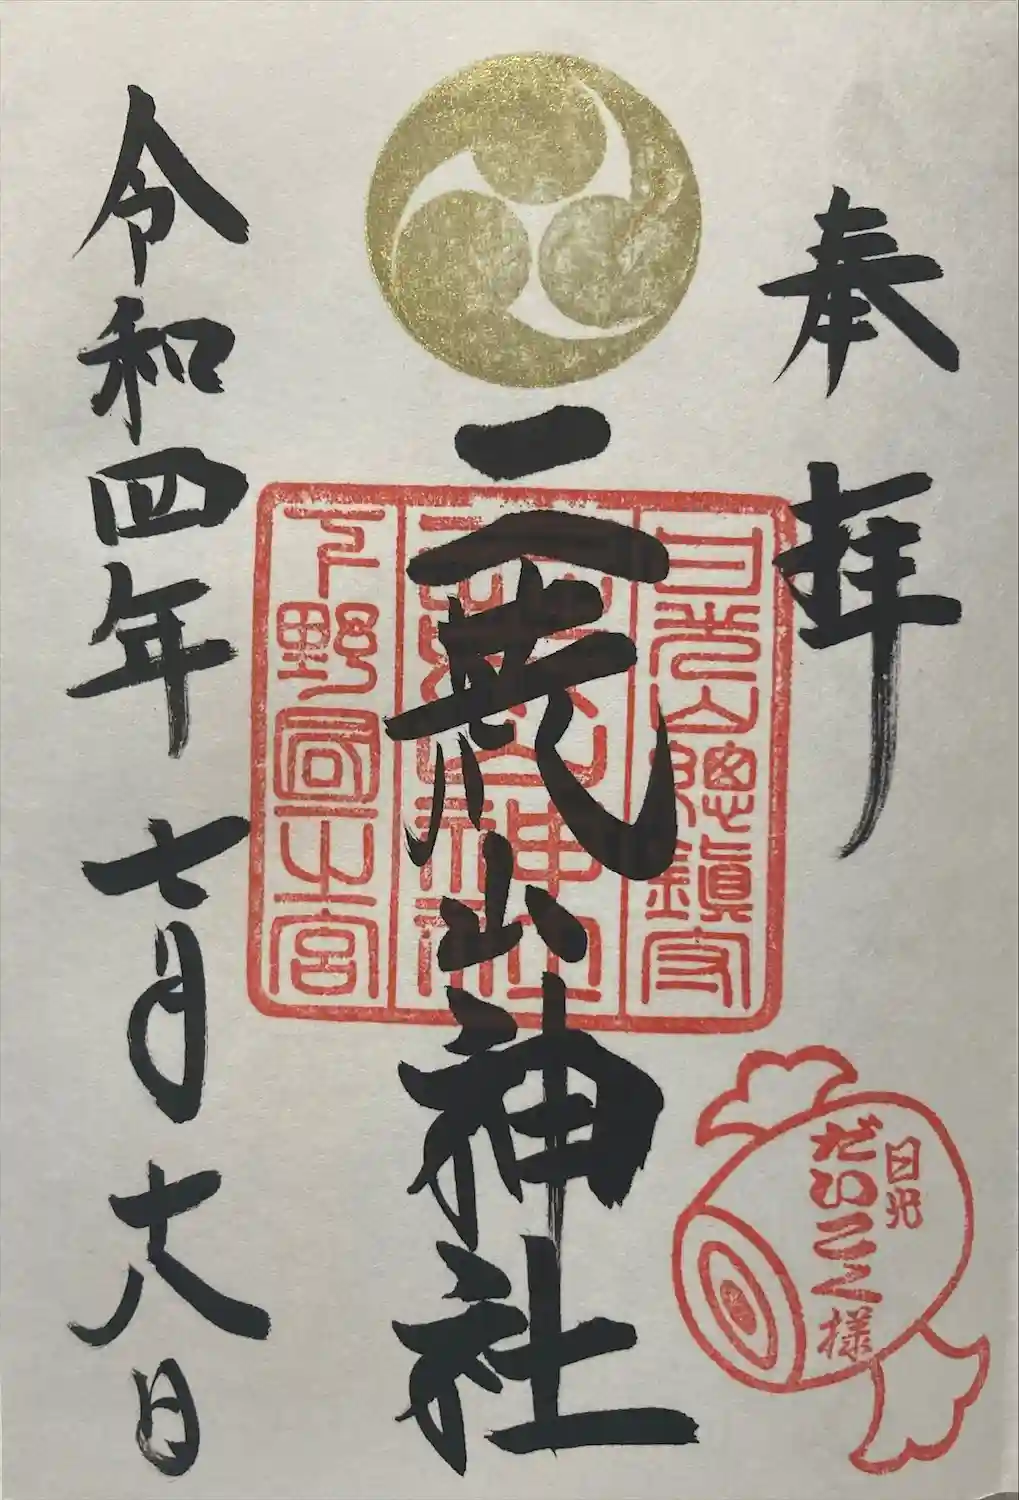 奉拝
日光山總鎮守
二荒山神社
下野國一之宮
二荒山神社
日光
だいこく様
令和四年七月十八日